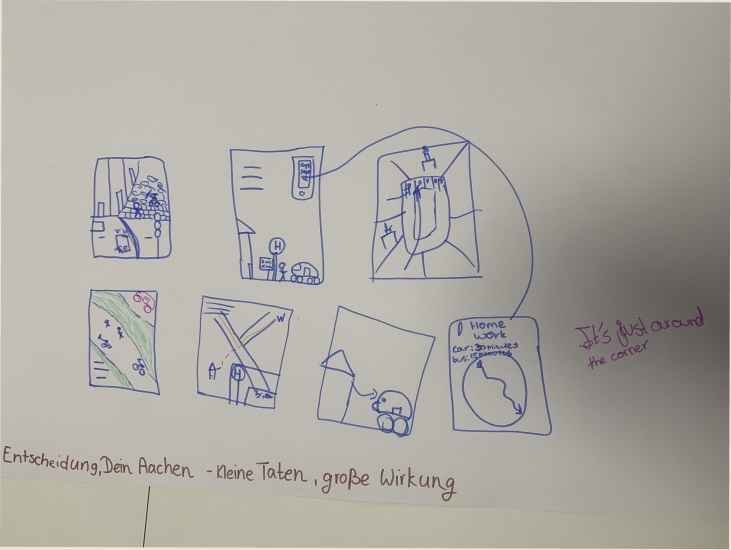 H
W
H
Home
work
car: 30 minutes
bus: 15 minutes
It's just around
the corner
Entscheidung, Dein Aachen - kleine Taten, große Wirkung